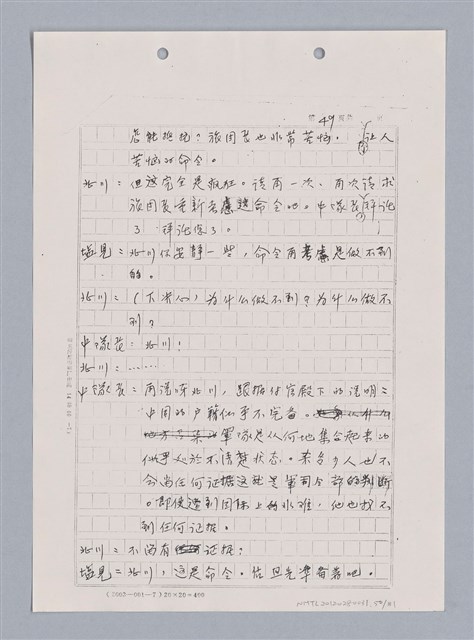 第49頁
怎能抵抗？旅团長也非常苦恼。让人
苦恼的命令。
北川：但这完全是疯狂。请再一次、再次请求
旅团長重新考慮这命令吧。中隊長拜託
了，拜託您了。
塩見：北川你安静一些，命令再考慮是做不到
的。
北川：（下决心）为什么做不到？为什么做不
到？
中隊長：北川！
北川：……
中隊長：再说啼北川，跟据付官殿下的说明：
中国的户籍似乎不完备。
軍隊是从何地集合起来的
似乎处於不清楚状态。杀多少人也不
会留任何证据这就是軍司令部的判断
。即使遭到国际上的非难，他也找不
到任何证据。
北川：不満有证据？
塩見：北川，这是命令。估且先準备着吧。
(2003-001-7) 20×20=400